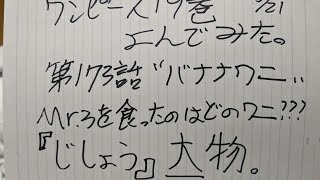 ワンピース19巻 7/21
よんでみた。
第173話“バナナワニ”
Mr.3を食ったのはどのワニ???
『じしょう』大物。